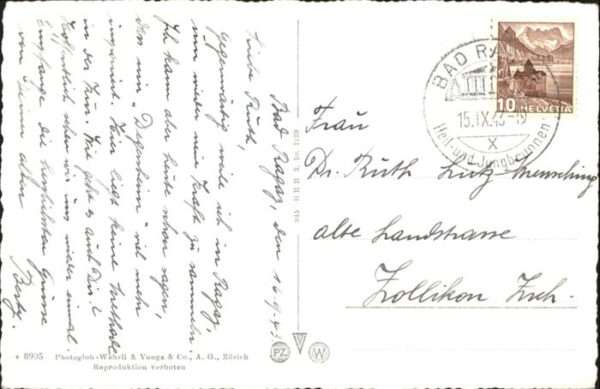 Bad Ragaz, den 16.9.43
Liebe Ruth,
Gegenwärtig weile ich in Ragaz
um wieder neue Kraft zu sammeln.
Ich kann aber heute schon sagen,
dass mir "Degersheim" viel mehr
imponiert. Hier liegt keine
in der Kur. Wie geht es auch Dir?
Hoffentlich sehen wir uns wieder einmal.
Empfange die herzlichsten Grüsse
von Deiner alten
Berty.
BAD RA
15.IX.43-19
X
Heil- und Jungbrunnen
10 HELVETIA
Frau
Dr. Ruth Lutz-Mensching
alte Landstrasse
Zollikon Zch.
8935 Photoglob-Wehrli & Vouga & Co., A. G., Zürich
Reproduktion verboten
PZ W